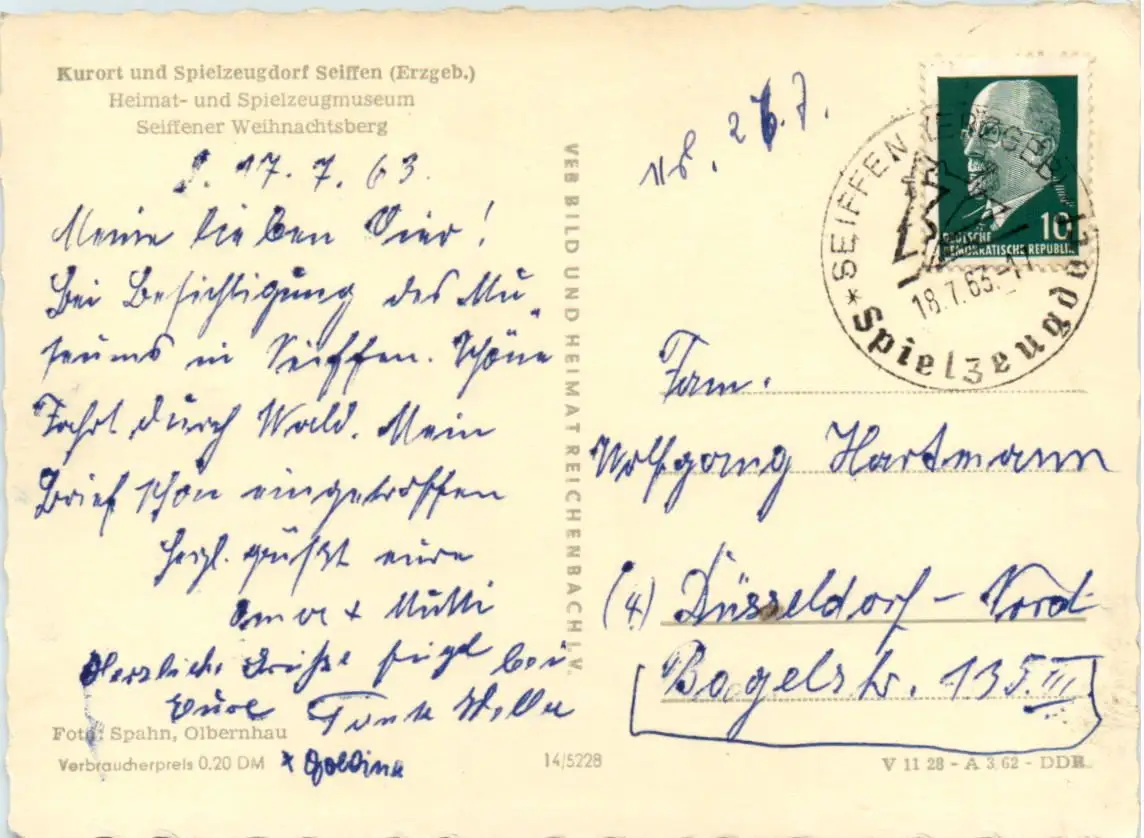 Kurort und Spielzeugdorf Seiffen (Erzgeb.)
Heimat- und Spielzeugmuseum
Seiffener Weihnachtsberg
17. 7. 63.
Meine lieben Vier!
Bei Besichtigung des Mu-
seums in Seiffen. Schöne
Fahrt durch Wald. Mein
Brief schon eingetroffen
Herzl. grüßt eure
Oma + Mutti
Herzliche Grüße fügt bei
Eure Tante
Foto: Spahn, Olbernhau
Verbraucherpreis 0.20 DM
14/5228
VEB BILD UND HEIMAT REICHENBACH I. V.
DEUTSCHE
DEMOKRATISCHE REPUBLIK
10
* SEIFFEN (ERZGEB.)
18.7.63.-17
Spielzeugdorf
Fam.
Wolfgang Hartmann
(4) Düsseldorf - Nord
Bagelstr. 135 III
V 11 28 - A 3/62 - DDR.